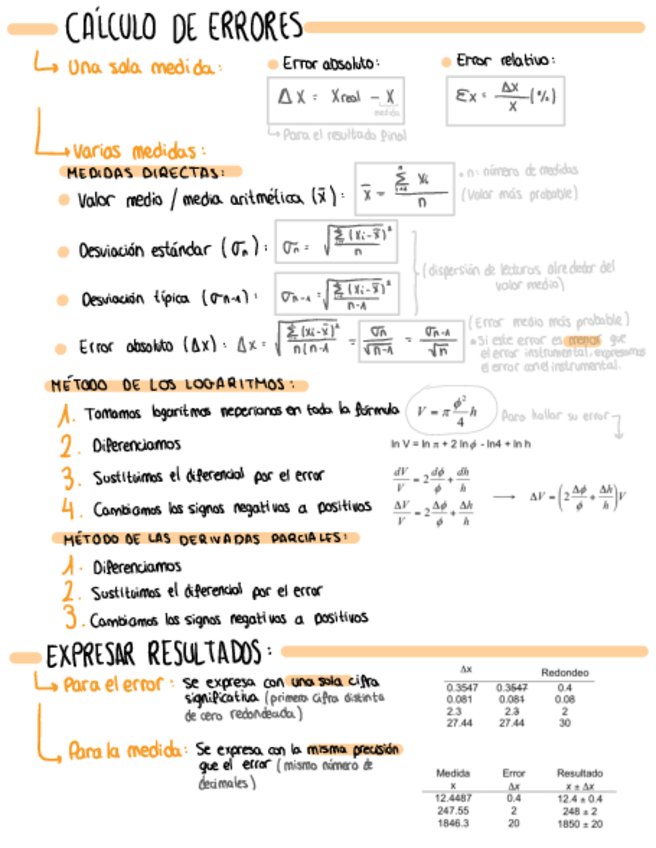 CÁLCULO DE ERRORES
Una sola medida:
Error absoluto:
Error relativo:
ΔX = Xreal - X
medida
Ɛx = Δx/x (%)
Para el resultado final
Varias medidas:
MEDIDAS DIRECTAS:
Valor medio / media aritmética (x̄):
x̄ = Σ xi / n
n: número de medidas
(Valor más probable)
Desviación estándar (σn):
σn = √(Σ(xi-x̄)²/n)
Desviación típica (σn-1):
σn-1 = √(Σ(xi-x̄)²/n-1)
(dispersión de lecturas alrededor del
valor medio)
Error absoluto (Δx): Δx = √(Σ(xi-x̄)²/n(n-1) = σn/√n-1 = σn-1/√n
(Error medio más probable)
Si este error es menor que
el error instrumental, expresamos
el error con el instrumental.
MÉTODO DE LOS LOGARITMOS:
1. Tomamos logaritmos neperianos en toda la fórmula
V = π ϕ²/4 h
Para hallar su error
2. Diferenciamos
ln V = ln π + 2 ln ϕ - ln4 + ln h
3. Sustituimos el diferencial por el error
dV/V = 2 dϕ/ϕ + dh/h
4. Cambiamos los signos negativos a positivos
ΔV/V = 2 Δϕ/ϕ + Δh/h
→ ΔV = (2 Δϕ/ϕ + Δh/h)V
MÉTODO DE LAS DERIVADAS PARCIALES:
1. Diferenciamos
2. Sustituimos el diferencial por el error
3. Cambiamos los signos negativos a positivos
EXPRESAR RESULTADOS:
Para el error: Se expresa con una sola cifra
significativa (primera cifra distinta
de cero redondeada)
Δx Redondeo
0.3547 0.3547 0.4
0.081 0.081 0.08
2.3 2.3 2
27.44 27.44 30
Para la medida: Se expresa con la misma precisión
que el error (mismo número de
decimales)
Medida Error Resultado
x Δx x ± Δx
12.4487 0.4 12.4 ± 0.4
247.55 2 248 ± 2
1846.3 20 1850 ± 20